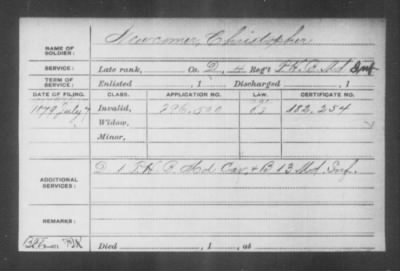 NAME OF SOLDIER: Newcomer, Christopher
SERVICE: Late rank, Co. D, 4 Reg't P.H.B. Md Inf
TERM OF SERVICE: Enlisted , 1 Discharged , 1
DATE OF FILING. CLASS. APPLICATION NO. LAW. CERTIFICATE NO.
1879 July 7 Invalid, 296.500 182.254
Widow,
Minor,
ADDITIONAL SERVICES: D 1 P.H.B. Md Cav, & B 13 Md. Inf.
REMARKS:
Died , 1 , at